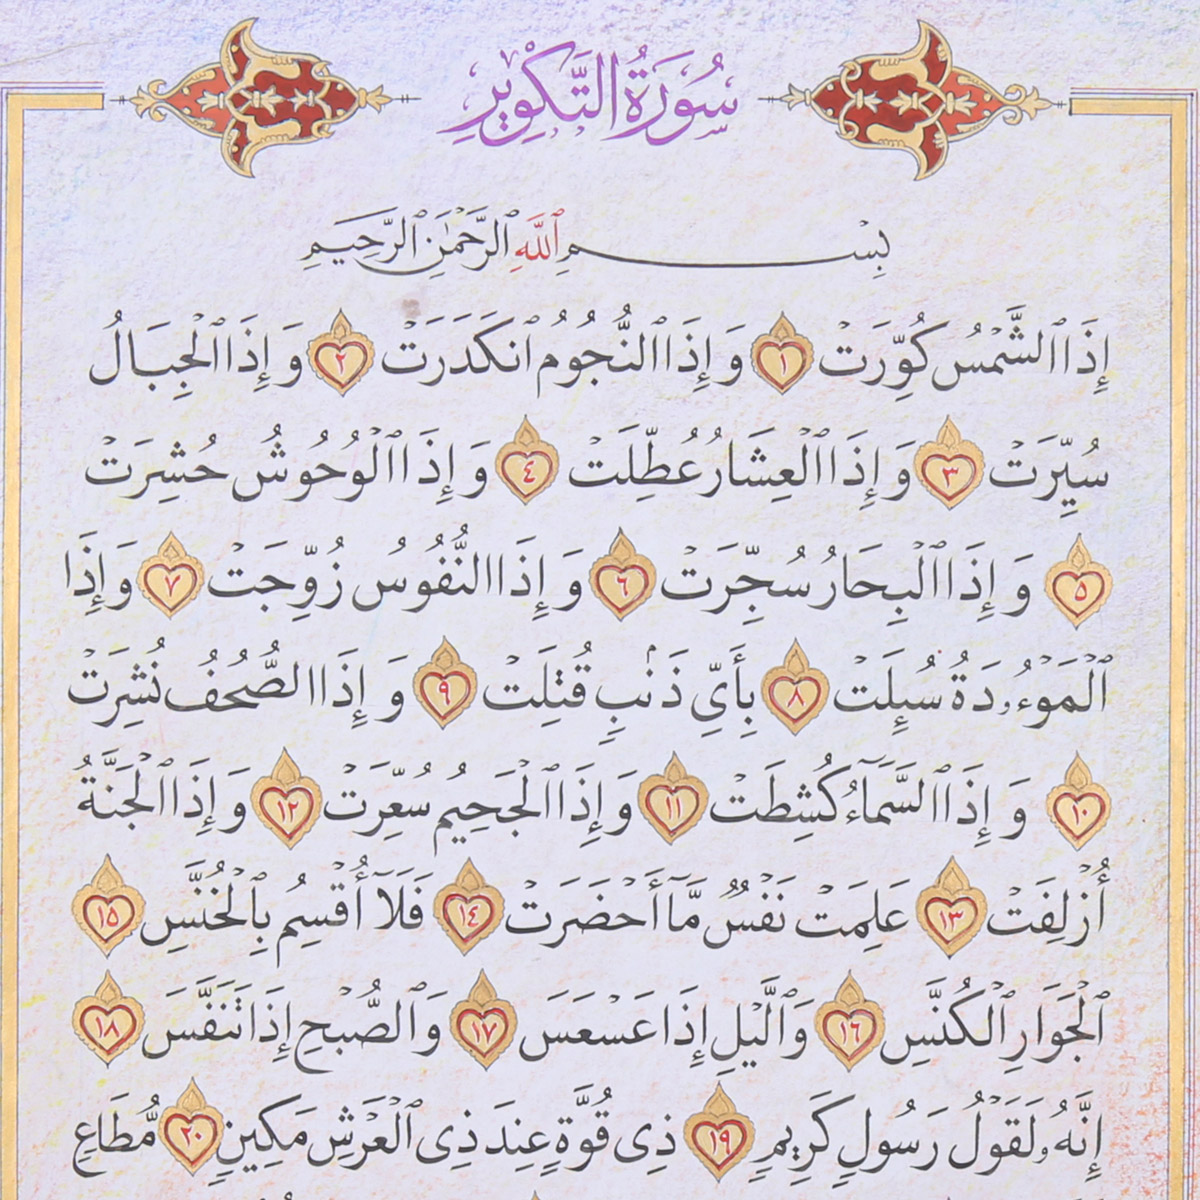 سُورَةُ التَّكْوِيرِ
بِسْمِ ٱللَّهِ ٱلرَّحْمَٰنِ ٱلرَّحِيمِ
إِذَا ٱلشَّمْسُ كُوِّرَتْ ١ وَإِذَا ٱلنُّجُومُ ٱنكَدَرَتْ ٢ وَإِذَا ٱلْجِبَالُ
سُيِّرَتْ ٣ وَإِذَا ٱلْعِشَارُ عُطِّلَتْ ٤ وَإِذَا ٱلْوُحُوشُ حُشِرَتْ
٥ وَإِذَا ٱلْبِحَارُ سُجِّرَتْ ٦ وَإِذَا ٱلنُّفُوسُ زُوِّجَتْ ٧ وَإِذَا
ٱلْمَوْءُۥدَةُ سُئِلَتْ ٨ بِأَىِّ ذَنۢبٍ قُتِلَتْ ٩ وَإِذَا ٱلصُّحُفُ نُشِرَتْ
١٠ وَإِذَا ٱلسَّمَآءُ كُشِطَتْ ١١ وَإِذَا ٱلْجَحِيمُ سُعِّرَتْ ١٢ وَإِذَا ٱلْجَنَّةُ
أُزْلِفَتْ ١٣ عَلِمَتْ نَفْسٌ مَّآ أَحْضَرَتْ ١٤ فَلَآ أُقْسِمُ بِٱلْخُنَّسِ ١٥
ٱلْجَوَارِ ٱلْكُنَّسِ ١٦ وَٱلَّيْلِ إِذَا عَسْعَسَ ١٧ وَٱلصُّبْحِ إِذَا تَنَفَّسَ ١٨
إِنَّهُۥ لَقَوْلُ رَسُولٍ كَرِيمٍ ١٩ ذِى قُوَّةٍ عِندَ ذِى ٱلْعَرْشِ مَكِينٍ ٢٠ مُّطَاعٍ